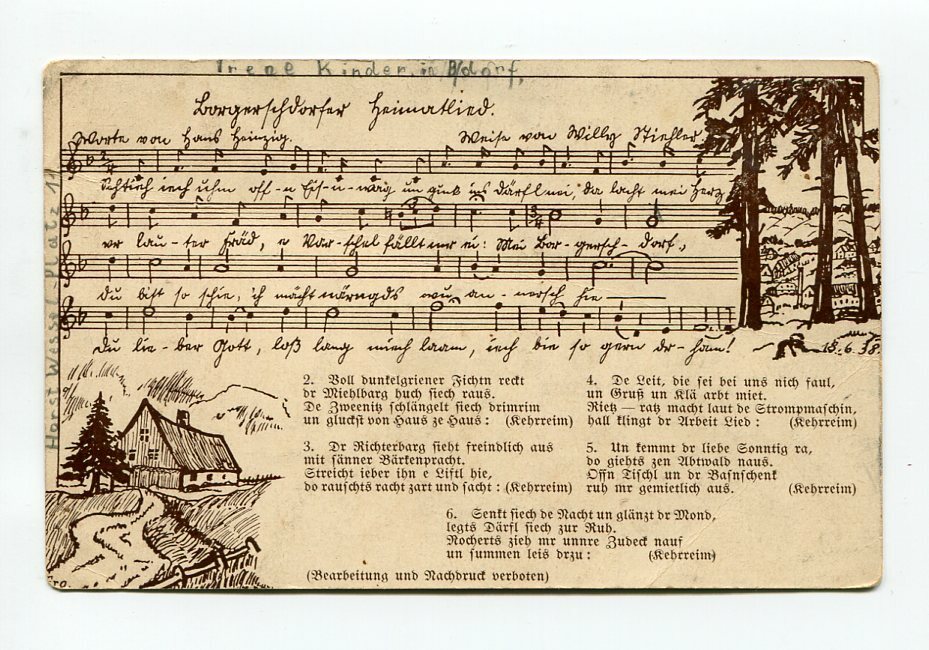 Irene Kinder, in B/dorf,
Horst Wessel-Platz 19
Borgerschdorfer Heimatlied.
Worte von Hans Heinzig. Weise von Willy Stiehler.
Schtieh iech uhm off-n Eis-n-waag un guck ins Därfl nei, da lacht mei Herz
vr lau-ter Fräd, e Var-schel fällt mr ei: Mei Bor-gersch-dorf,
du bist so schie, ich mächt närngds wu an-nersch hie
du lie-ber Gott, loß lang miech laam, iech bie so gern dr-ham!
15.6.38
2. Voll dunkelgriener Fichtn reckt
dr Miehlbarg huch siech raus.
De Zweenitz schlängelt siech drimrim
un gluckst von Haus ze Haus: (Kehrreim)
3. Dr Richterbarg sieht freindlich aus
mit sänner Bärkenpracht.
Streicht ieber ihn e Liftl hie,
do rauschts racht zart und sacht: (Kehrreim)
4. De Leit, die sei bei uns nich faul,
un Gruß un Klä arbt miet.
Rietz — ratz macht laut de Strompmaschin,
hall klingt dr Arbeit Lied: (Kehrreim)
5. Un kemmt dr liebe Sonntig ra,
do giehts zen Abtwald naus.
Offn Tischl un dr Basnschenk
ruh mr gemietlich aus. (Kehrreim)
6. Senkt siech de Nacht un glänzt dr Mond,
legts Därfl siech zur Ruh.
Nocherts zieh mr unnre Zudeck nauf
un summen leis drzu: (Kehrreim)
(Bearbeitung und Nachdruck verboten)